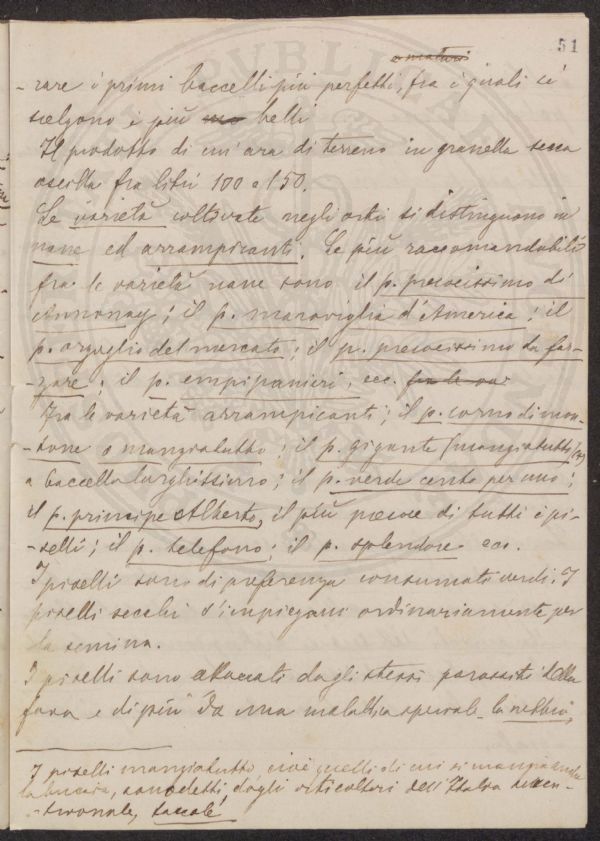 51
o maturi
-rare i primi baccelli più perfetti, fra i quali si
scelgono i più belli
Il prodotto di un'ara di terreno in granella secca
oscilla fra litri 100 a 150.
Le varietà coltivate negli orti si distinguono in
nane ed arrampicanti. Le più raccomandabili
fra le varietà nane sono il p. precocissimo di
Annonay; il p. maraviglia d'America; il
p. orgoglio del mercato; il p. precocissimo da for-
zare; il p. empipanieri, ecc. fra le va
Fra le varietà arrampicanti; il p. corno di mon-
-tone o mangiatutto; il p. gigante (mangiatutto)
a baccello larghissimo; il p. verde cento per uno;
il p. principe Alberto, il più precoce di tutti i pi-
-selli; il p. telefono; il p. splendore ecc.
I piselli sono di preferenza consumati verdi. I
piselli secchi s'impiegano ordinariamente per
la semina.
I piselli sono attaccati dagli stessi parassiti della
fava e di più da una malattia speciale la nebbia,
I piselli mangiatutto, cioè quelli di cui si mangia anche
la buccia, son detti, dagli orticoltori dell'Italia setten-
-trionale, taccole